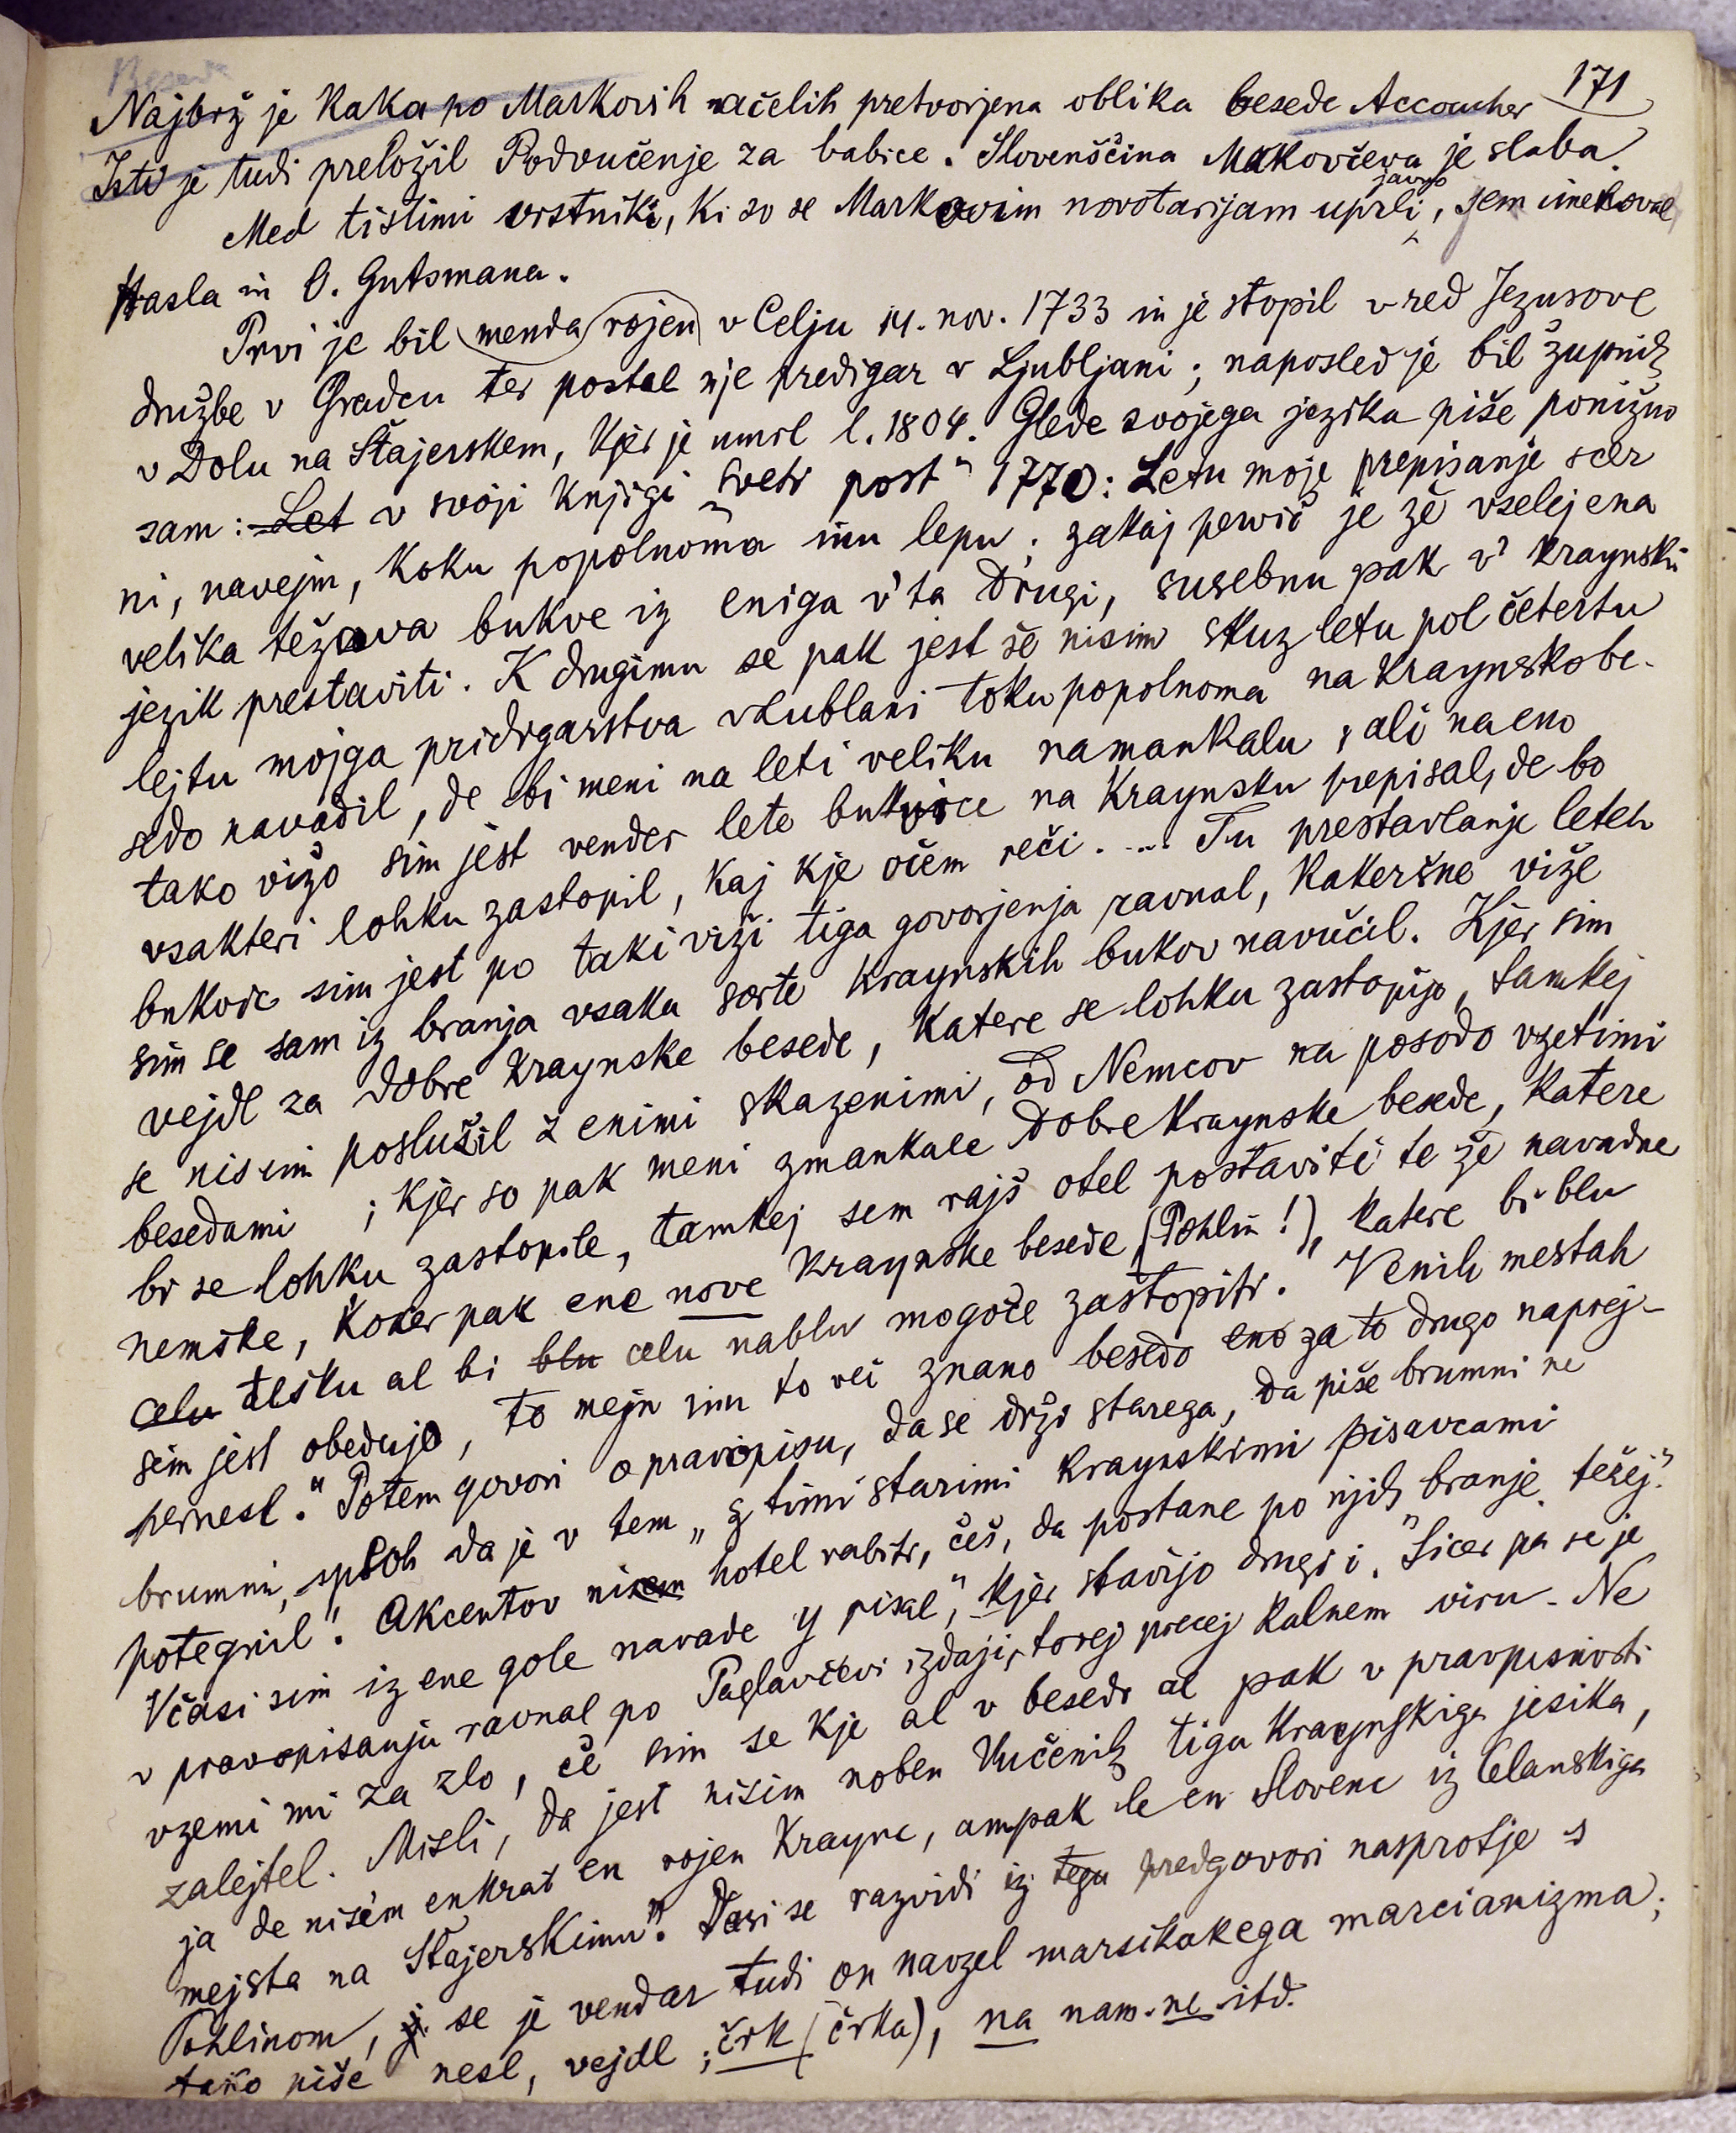 171
Najbrž je kaka po Markovih načelih pretvorjena oblika besede Accoucher
Isti je tudi preložil Podvučenje za babice. Slovenščina Makovčeva je slaba.
Med tistimi vrstniki, ki so se Markovim novotarijam javno uprli, sem imenoval
Hasla in O. Gutsmana.
Prvi je bil menda rojen v Celju 14. nov. 1733 in je stopil v red Jezusove
družbe v Gradcu ter postal nje predigar v Ljubljani; naposled je bil župnik
v Dolu na Štajerskem, kjer je umrl l. 1804. Glede svojega jezika piše ponižno
sam: Let v svoji knjigi „Sveti post" 1770: Letu moje prepisanje scer
ni, navejm, koku popolnoma inu lepu; zakaj pervič je že vselej ena
velika težava bukve iz eniga v' ta drugi, susebnu pak v' kraynski
jezik prestaviti. K drugimu se pak jest še nisim skuz letu pol četertu
lejtu mojga pridigarstva v Lublani toku popolnoma na kraynsko be-
sedo navadil, de bi meni na leti veliku namankalu, ali na eno
tako vižo sim jest vender lete bukvice na Kraynsku prepisal, de bo
vsakteri lohku zastopil, kaj kje očem reči. ... Tu prestavlanje leteh
bukvic sim jest po taki viži tiga govorjenja ravnal, kakeršne viže
sim se sam iz branja vsaka sorte kraynskih bukov navučil. Kjer sim
vejdl za dobre kraynske besede, katere se lohku zastopijo, tamkej
se nisim poslužil z enimi skazenimi, od Nemcov na posodo vzetimi
besedami ; kjer so pak meni zmankale dobre kraynske besede, katere
bi se lohku zastopile, tamkej sem rajš otel postaviti te že navadne
nemške, koker pak ene nove kraynske besede (Pohlin!), katere bi blu
celu tešku al bi blu celu nablu mogoče zastopiti. V enih mestah
sim jest obeduje, to mejn inu to več znano besedo eno za to drugo naprej-
pernesl." Potem govori o pravopisu, da se drži starega, da piše brumni ne
brumnu, sploh da je v tem „z timi starimi kraynskimi pisavcami
potegnil". Akcentov nisem hotel rabiti, češ, da postane po njih „branje težej."
Včasi sim iz ene gole navade y pisal", kjer stavijo drugi i. „Sicer pa se je
v pravopisanju ravnal po Paglavčevi izdaji, torej precej kalnem viru. Ne
vzemi mi za zlo, če sim se kje al v besedi al pak v pravpisnosti
zalejtel. Misli, da jest nisim noben Vučenik tiga Kraynskiga jesika,
ja de nisem enkrat en rojen Krayne, ampak le en Slovenc iz Celanskiga
mejsta na Štajerskimu". Dasi se razvidi iz tega predgovori nasprotje s
Pohlinom, se je vendar tudi on navzel marsikakega marcianizma;
tako piše nesl, vejdl, črk (črka), na nam. ne itd.